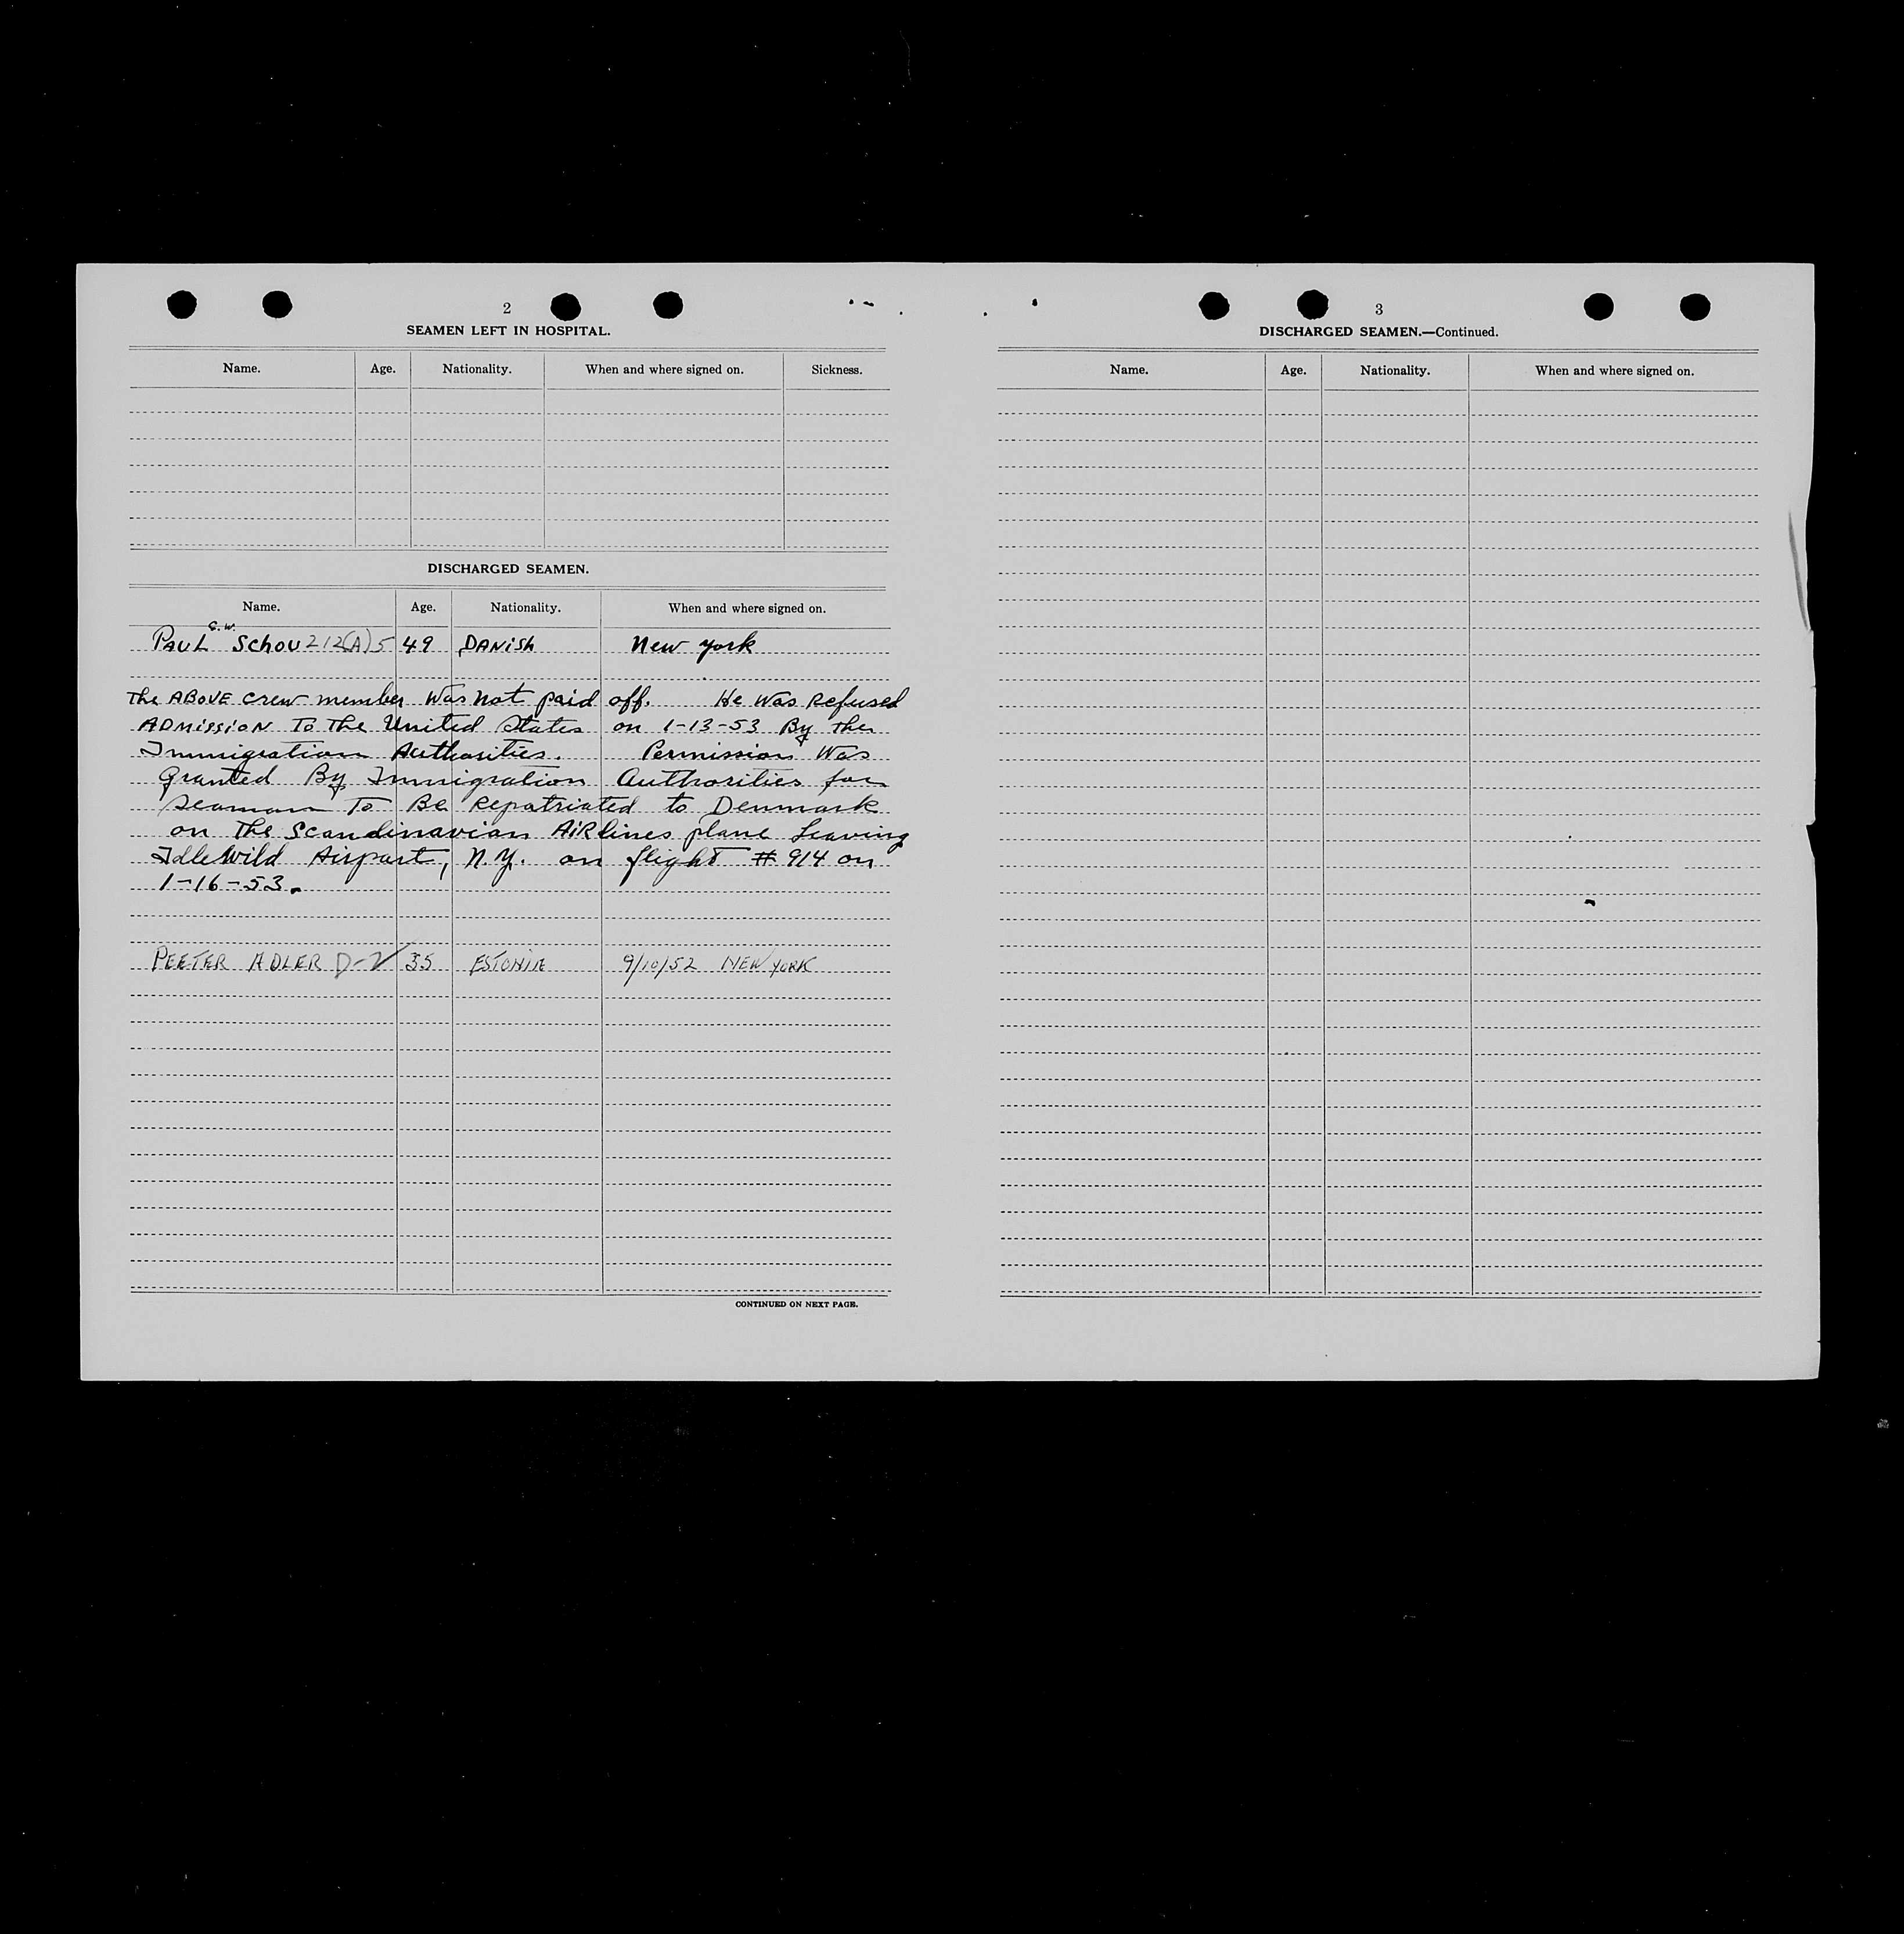 2
SEAMEN LEFT IN HOSPITAL.
Name. Age. Nationality. When and where signed on. Sickness.
DISCHARGED SEAMEN.
Name. Age. Nationality. When and where signed on.
PAUL G.W. Schou 212(A)5 49 DANISH New York
The ABOVE crew member Was not paid off. He Was Refused
ADMISSION To The United States on 1-13-53 By the
Immigration Authorities. Permission Was
Granted By Immigration Authorities for
Seaman To Be Repatriated to Denmark
on The Scandinavian AiRlines plane Leaving
IdleWild Airport, N.Y. on flight # 914 on
1-16-53.
PEETER ADLER D-2 35 ESTONIA 9/10/52 NEW YORK
CONTINUED ON NEXT PAGE.
3
DISCHARGED SEAMEN.—Continued.
Name. Age. Nationality. When and where signed on.